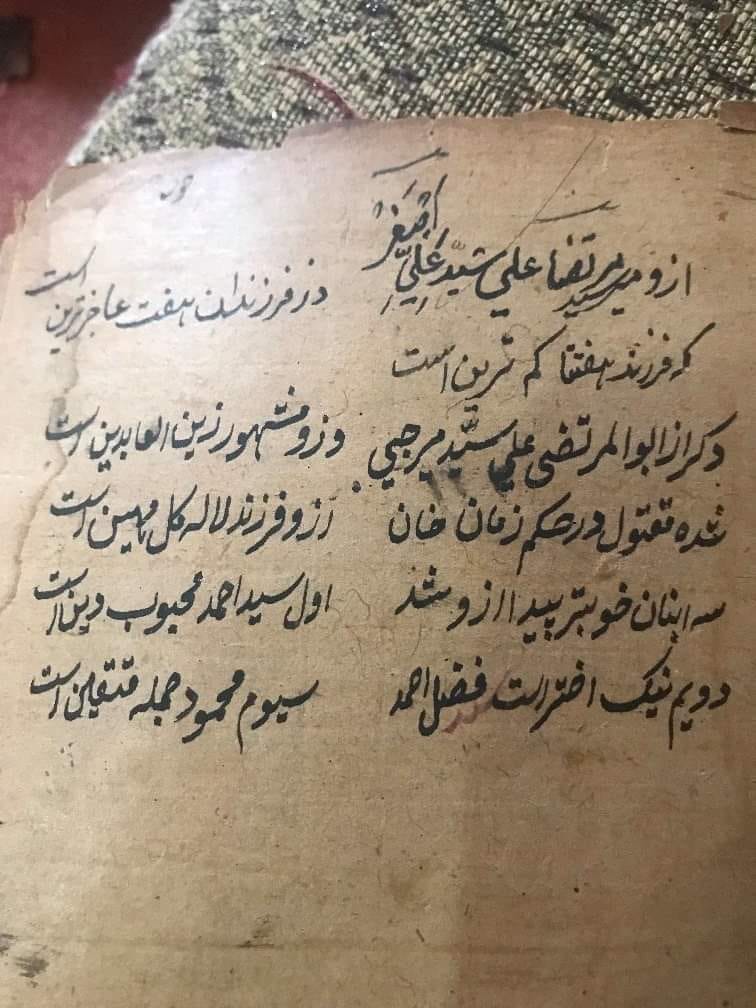 اصغر
ازو میر سید مرتضا علی سید علی در فرزندان هفت عاجزترین است
که فرزند هفتقا کم ترین است
دکر از ابوالمرتضی علی سید میرجی وزو مشهور زین العابدین است
شده مقتول در حکم زمان خان ازو فرزند لاله کل مهین است
سه ابنان خوبتر پیدا ازو شد اول سید احمد محبوب دین است
دویم نیک اختر است فضل احمد سیوم محمود جمله متقین است